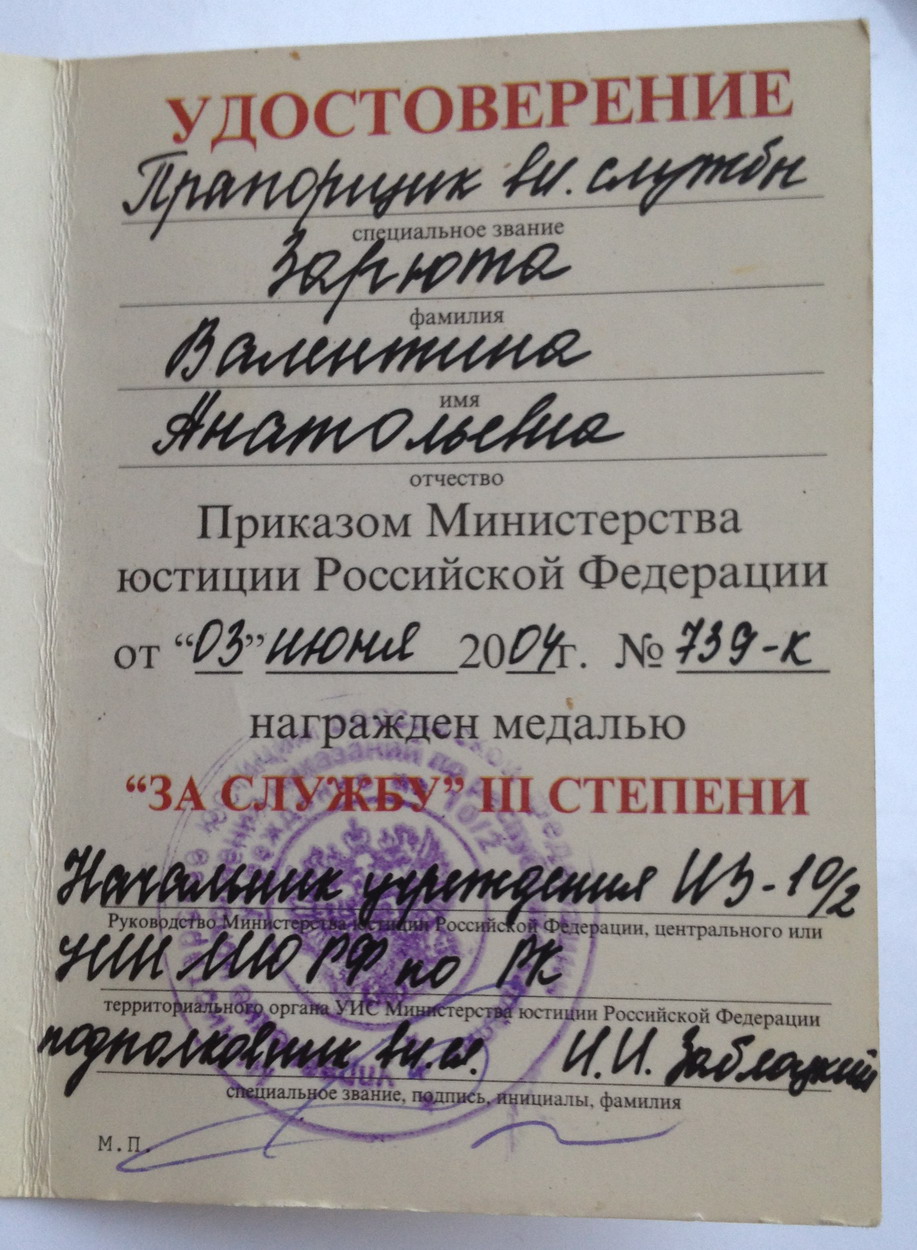 УДОСТОВЕРЕНИЕ
Прапорщик вн. службы
специальное звание
Зарюта
фамилия
Валентина
имя
Анатольевна
отчество
Приказом Министерства
юстиции Российской Федерации
от “03” июня 2004г. № 739-к
награжден медалью
“ЗА СЛУЖБУ” III СТЕПЕНИ
Начальник учреждения ИЗ-10/2
Руководство Министерства юстиции Российской Федерации, центрального или
УИН МЮ РФ по РК
территориального органа УИС Министерства юстиции Российской Федерации
подполковник вн.сл. И.И. Заблоцкий
специальное звание, подпись, инициалы, фамилия
М.П.